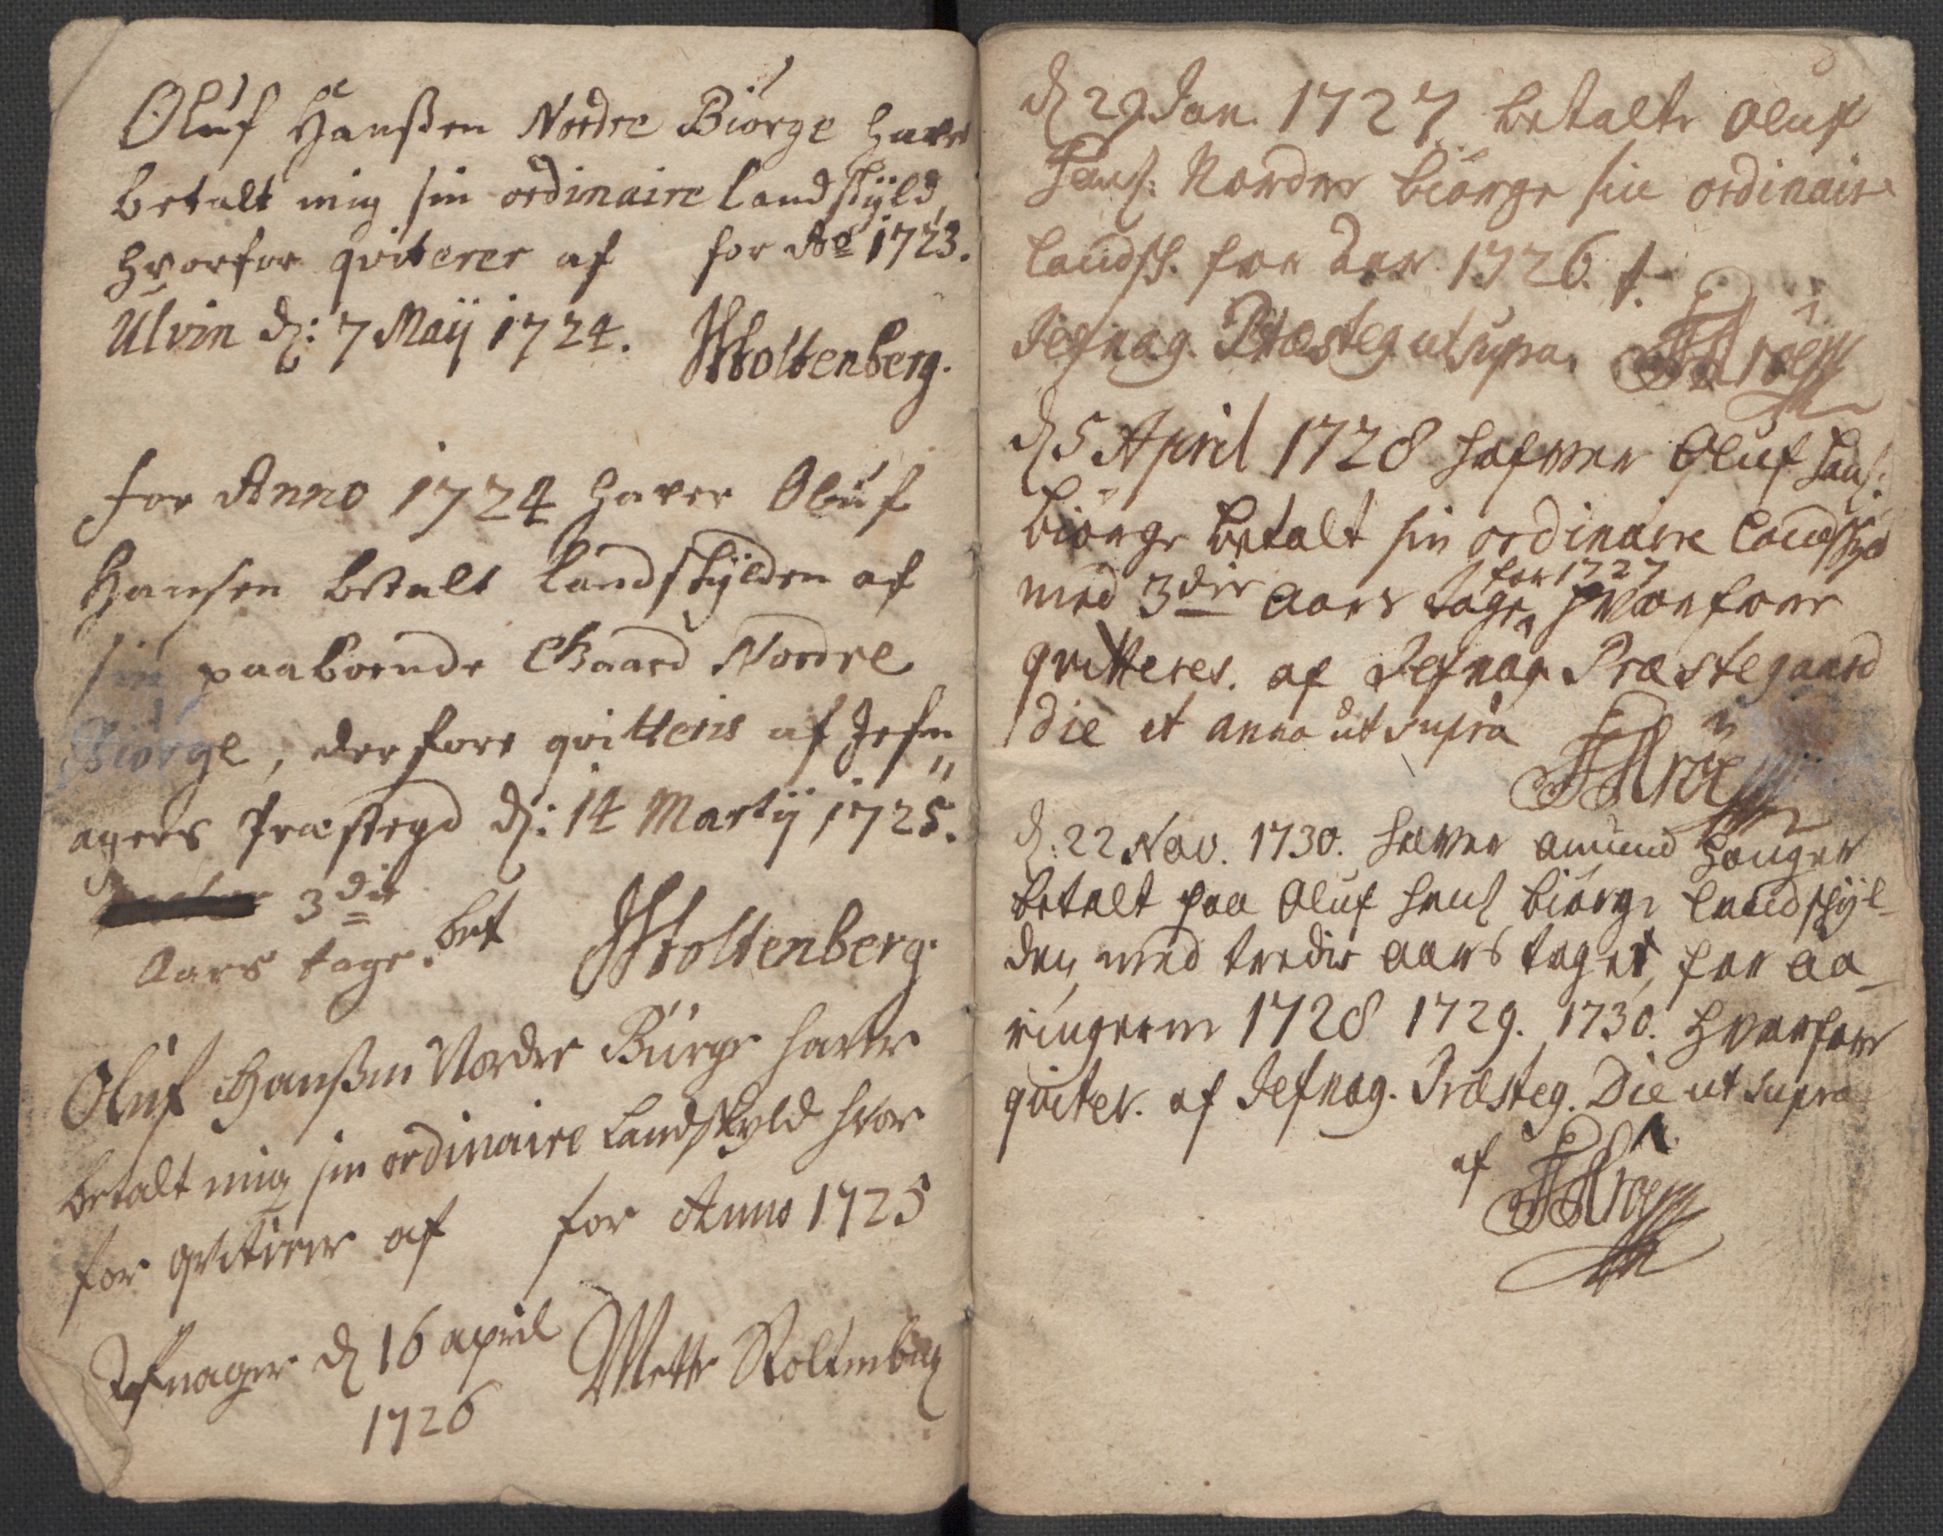 Oluf Hanßen Nordre Biörge haver
betalt mig sin ordinaire Landskÿld,
hvorfor qviterer af for Ao 1723.
Ulvin d: 7 Maÿ 1724. Stoltenberg.
for Anno 1724 haver Oluf
Hansen betalt Landskÿlden af
sin paaboende Gaard Nordre
Biörge, derfore qvitteris af Jefn„
agers Præstegd d: 14 Martÿ 1725.
3die
Aars tage. bet Stoltenberg.
Oluf Hanßen Nordre Biörge haver
betalt mig sin ordinaire Landskyld hvor
for qviterer af for Anno 1725
Jefnager d 16 april
1726 Mette Stoltenberg
d 29 Jan. 1727 betalte Oluf
Hans: Nordre biörge sin ordinaire
Landsk. for Aar 1726.
Jefnag. Præsteg. ut supra.
d 5 April 1728 hafver Oluf Hans:
biörge betalt sin ordinaire Landskyld
med 3die Aars tage for 1727 hvorfore
qvitteres. af Jefnag Præstegaard
die et anno ut supra
d: 22 Nov. 1730. haver Amund Houger
betalt paa Oluf Hans biörge Landskÿl-
den, med tredie aars taget, for Aa-
ringerne 1728 1729. 1730. hvorfore
qviter. af Jefnag. Præsteg. Die ut supra
af